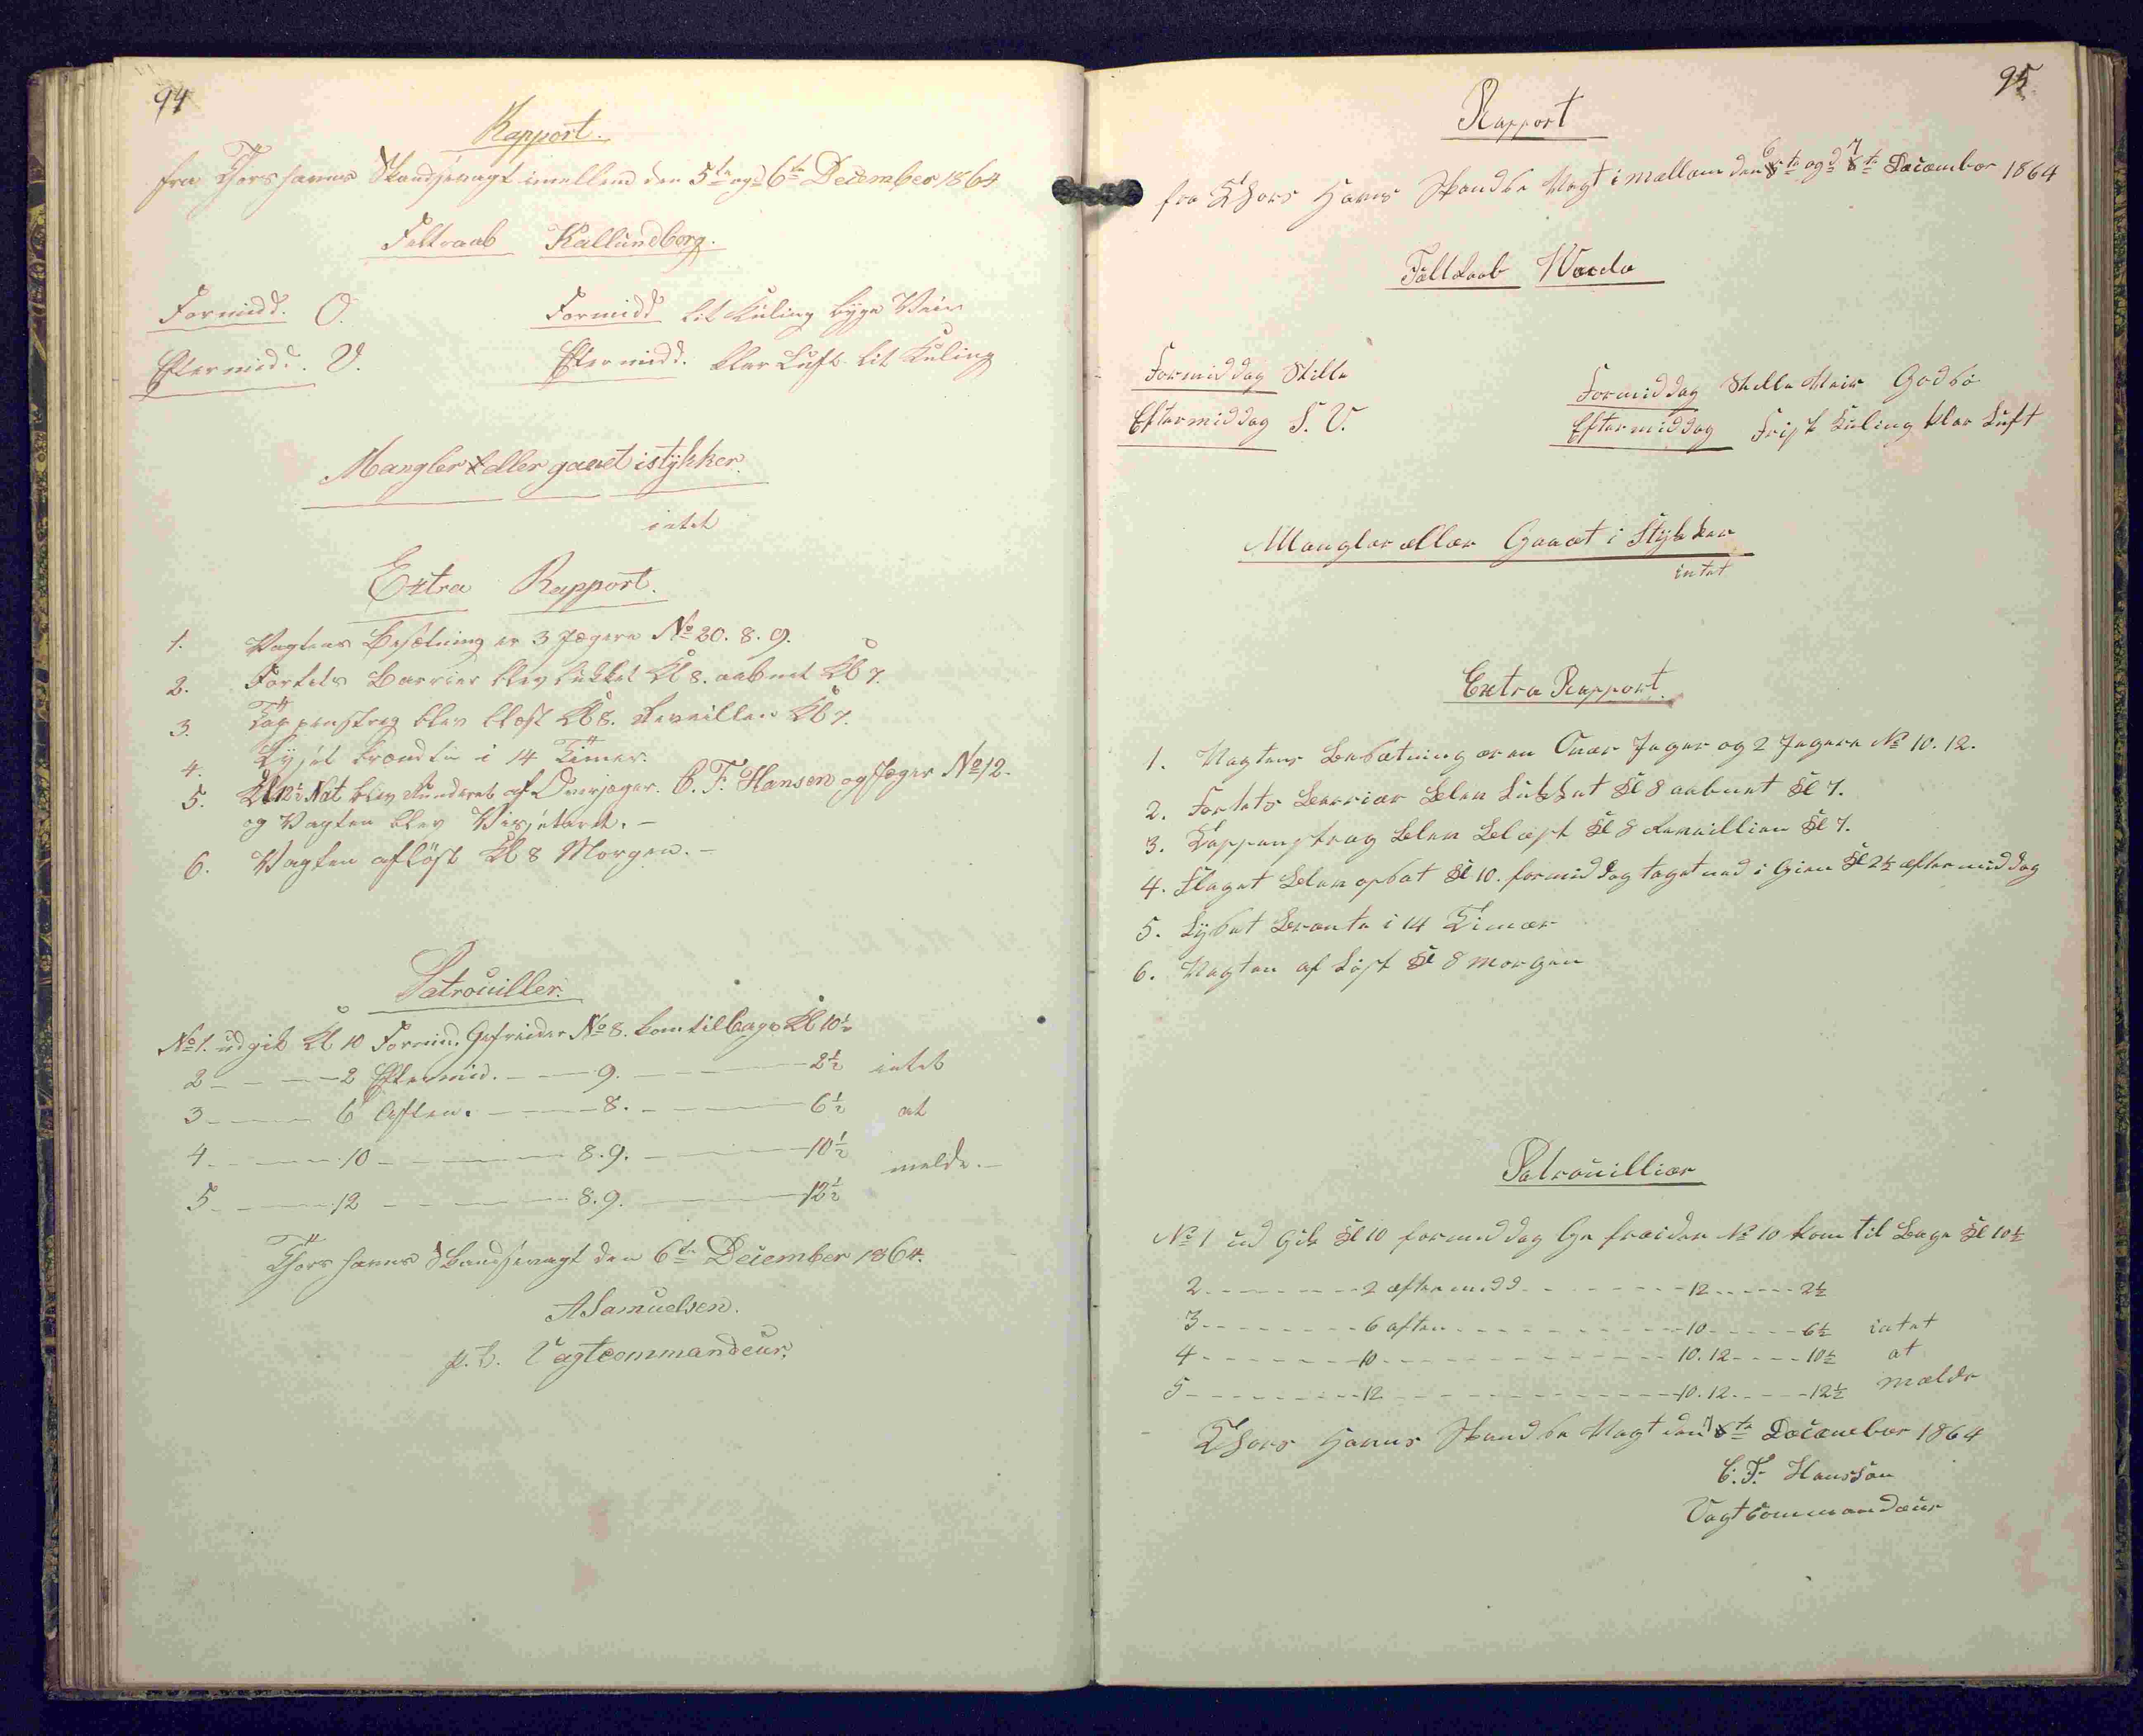 94
Rapport.
fra Thorshavns Skandsevagt imellem den 5te og 6te December 1864
Feltraab Kallundborg.
Formidd. O. Formidd lit Kuling byge Veir
Eftermidd. V. Eftermidd. klar Luft lit Kuling
Mangler eller gaaet istykker.
intet
Extra Rapport.
1. Vagtens Besætning er 3 Jægere No 20. 8. 9.
2. Fortets Barrier blev lukket Kl 8. aabnet Kl 7.
3. Tappenstreg blev blæst Kl 8. Reveillen Kl 7.
4. Lyset brændte i 14 Timer.
5. Kl 12½ Nat blev Runderet af Overjæger. C. F. Hansen og Jæger No 12.
og Vagten blev Visiteret. –
6. Vagten afløst Kl 8 Morgen. –
Patrouiller.
No 1. udgik Kl 10 Formid. Gefreider No 8. kom tilbage Kl 10½
2 – – – 2 Eftermid. – – 9. – – – 2½ intet
3 – – – 6 Aften. – – – 8. – – – 6½ at
4 – – – 10 – – – 8.9. – – – 10½ melde. –
5 – – – 12 – – – 8.9. – – – 12½
Thorshavns Skandsevagt den 6te December 1864.
A Samuelsen.
p.t. Vagtcommandeur.
95.
Rapport
fra Thors Havns Skandse Vagt imellem den 6te og d 7te December 1864
Feltraab Warde
Formiddag Stille Formiddag Stille Veir Godsø
Eftermiddag S. V. Eftermiddag Frisk Kuling klar Luft
Mangler eller Gaaet i Stykker
intet
Extra Rapport.
1. Vagtens Besætning er en Over Jæger og 2 Jægere No 10. 12.
2. Fortets Barrier blev Lukket Kl 8 aabnet Kl 7.
3. Tappenstrag blev blæst Kl 8 Reveillien Kl 7.
4. Flaget blev opsat Kl 10. formiddag taget ned i Gien Kl 2½ eftermiddag
5. Lyset brænte i 14 Timer
6. Vagten af Løst Kl 8 morgen
Patrouillier
No 1 ud Gik Kl 10 formiddag Gefreider No 10 kom til Bage Kl 10½
2 – – – 2 eftermidd – – – 12 – – – 2½
3 – – – 6 aften – – – 10 – – – 6½ intet
4 – – – 10 – – – 10.12 – – – 10½ at
5 – – – 12 – – – 10.12 – – – 12½ melde
Thors Havns Skandse Vagt den 7te December 1864
C. F. Hansson
Vagtcommandeur